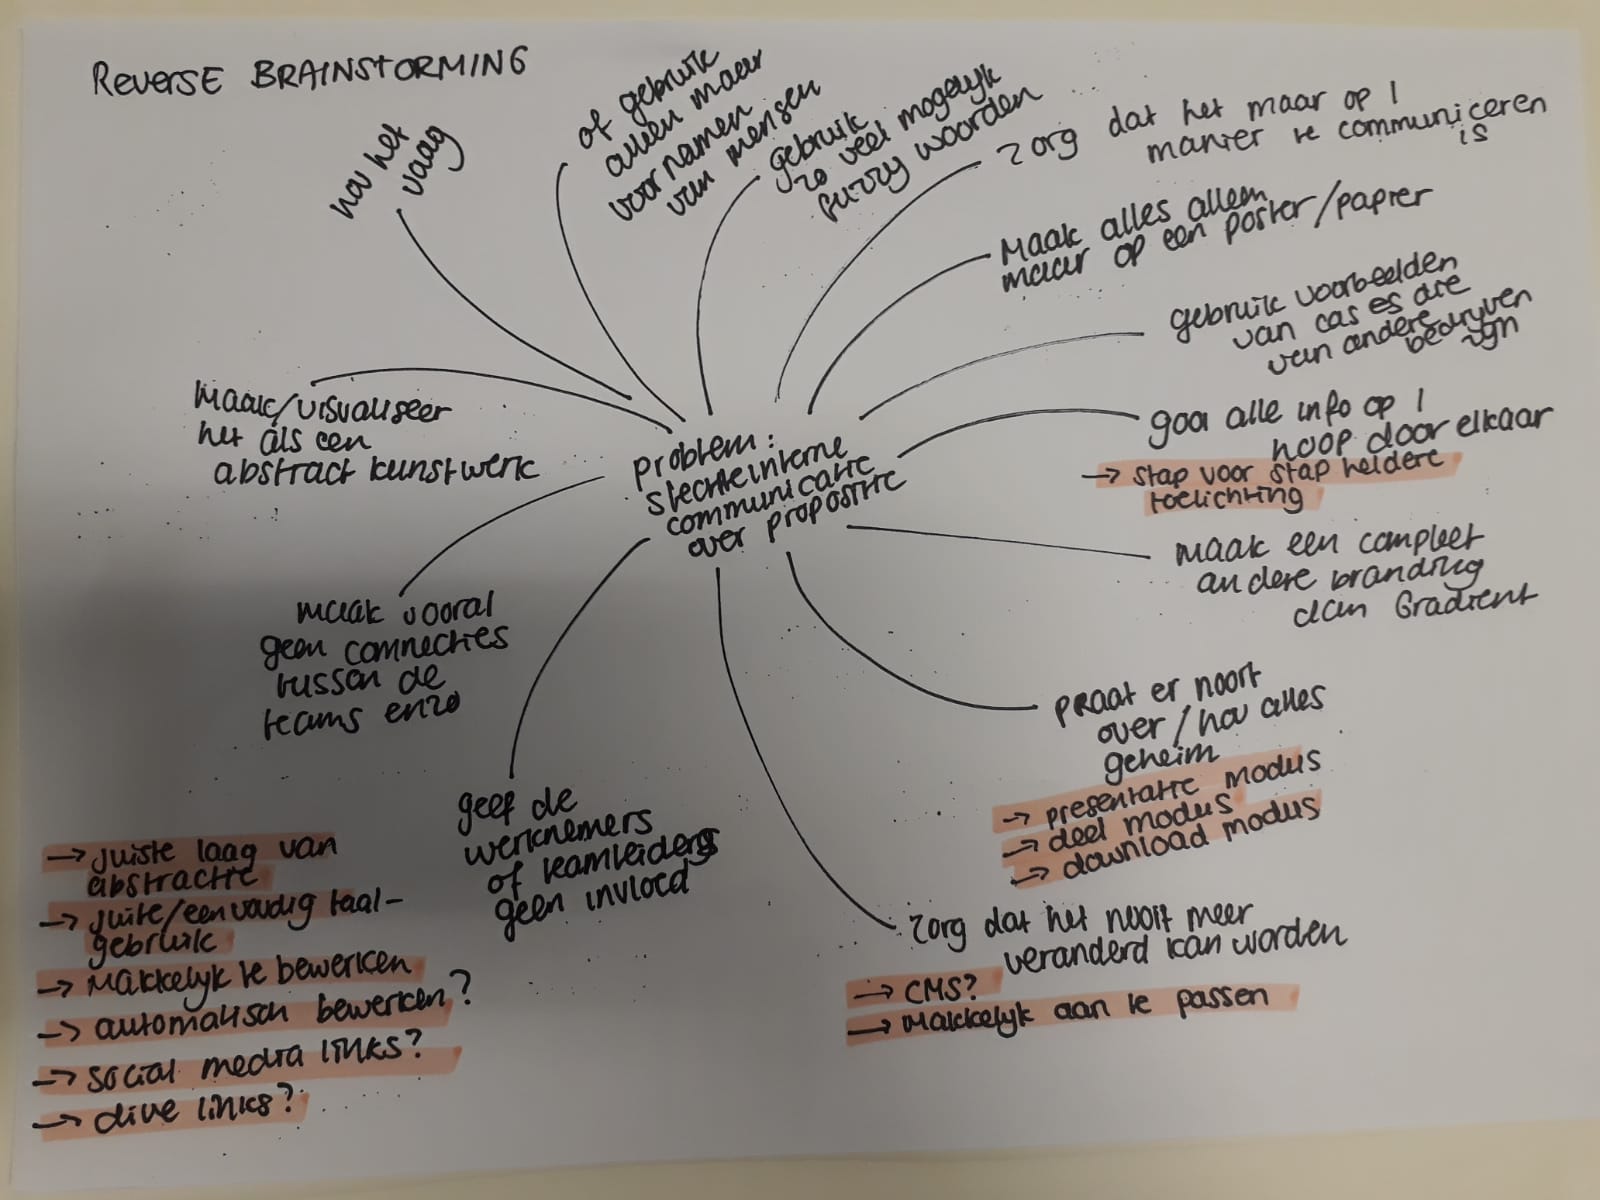 Reverse BRAINSTORMING
hou het
vaag
of gebruik
alleen maar
voornamen
van mensen
gebruik
zo veel mogelijk
fuzzy woorden
zorg dat het maar op 1
manier te communiceren
is
Maak alles alleen
maar op een poster/papier
gebruik voorbeelden
van cases die
van andere
bedrijven
zijn
gooi alle info op 1
hoop door elkaar
→ stap voor stap heldere
toelichting
maak een compleet
andere branding
dan Gradient
praat er nooit
over / hou alles
geheim
→ presentatie modus
→ deel modus
→ download modus
zorg dat het nooit meer
veranderd kan worden
→ CMS?
→ Makkelijk aan te passen
geef de
werknemers
of teamleiders
geen invloed
maak vooral
geen connecties
tussen de
teams enzo
maak/visualiseer
het als een
abstract kunstwerk
problem:
slechte interne
communicatie
over propositie
→ juiste laag van
abstractie
→ juite/eenvoudig taal-
gebruik
→ Makkelijk te bewerken
→ automatisch bewerken?
→ social media links?
→ dive links?